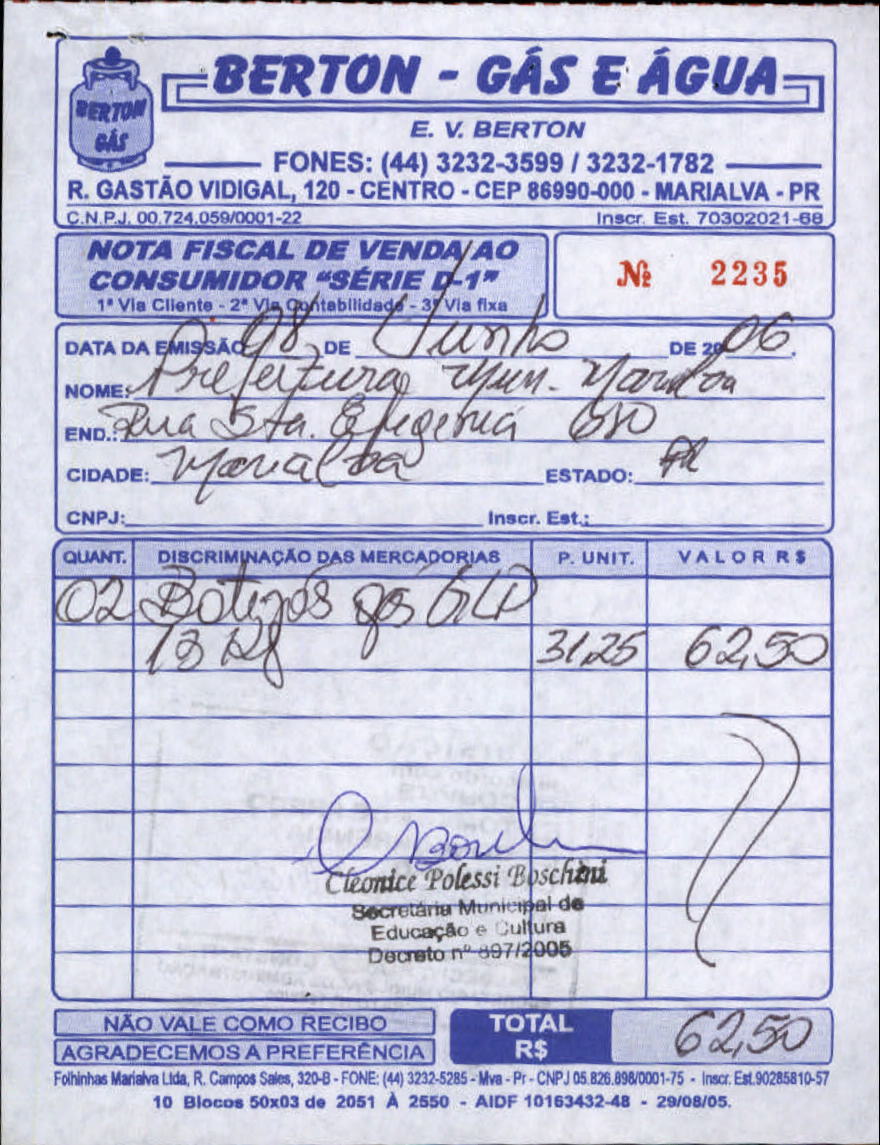 BERTON GÁS
BERTON - GÁS E ÁGUA
E. V. BERTON
FONES: (44) 3232-3599 / 3232-1782
R. GASTÃO VIDIGAL, 120 - CENTRO - CEP 86990-000 - MARIALVA - PR
C.N.P.J. 00.724.059/0001-22 Inscr. Est. 70302021-68
NOTA FISCAL DE VENDA AO
CONSUMIDOR “SÉRIE D-1”
1ª Via Cliente - 2ª Via Contabilidade - 3ª Via fixa
Nº 2235
DATA DA EMISSÃO 08 DE Junho DE 2006.
NOME: Prefeitura Mun. Marialva
END.: Rua Sta. Efigenia 680
CIDADE: Marialva ESTADO: PR
CNPJ: Inscr. Est.:
QUANT. DISCRIMINAÇÃO DAS MERCADORIAS P. UNIT. VALOR R$
02 Botijas gás GLP
13 Kg 31,25 62,50
Cleonice Polessi Boschini
Secretária Municipal de
Educação e Cultura
Decreto nº 897/2005
NÃO VALE COMO RECIBO
AGRADECEMOS A PREFERÊNCIA
TOTAL R$ 62,50
Folhinhas Marialva Ltda, R. Campos Sales, 320-B - FONE: (44) 3232-5285 - Mva - Pr - CNPJ 05.826.898/0001-75 - Inscr. Est.90285810-57
10 Blocos 50x03 de 2051 À 2550 - AIDF 10163432-48 - 29/08/05.